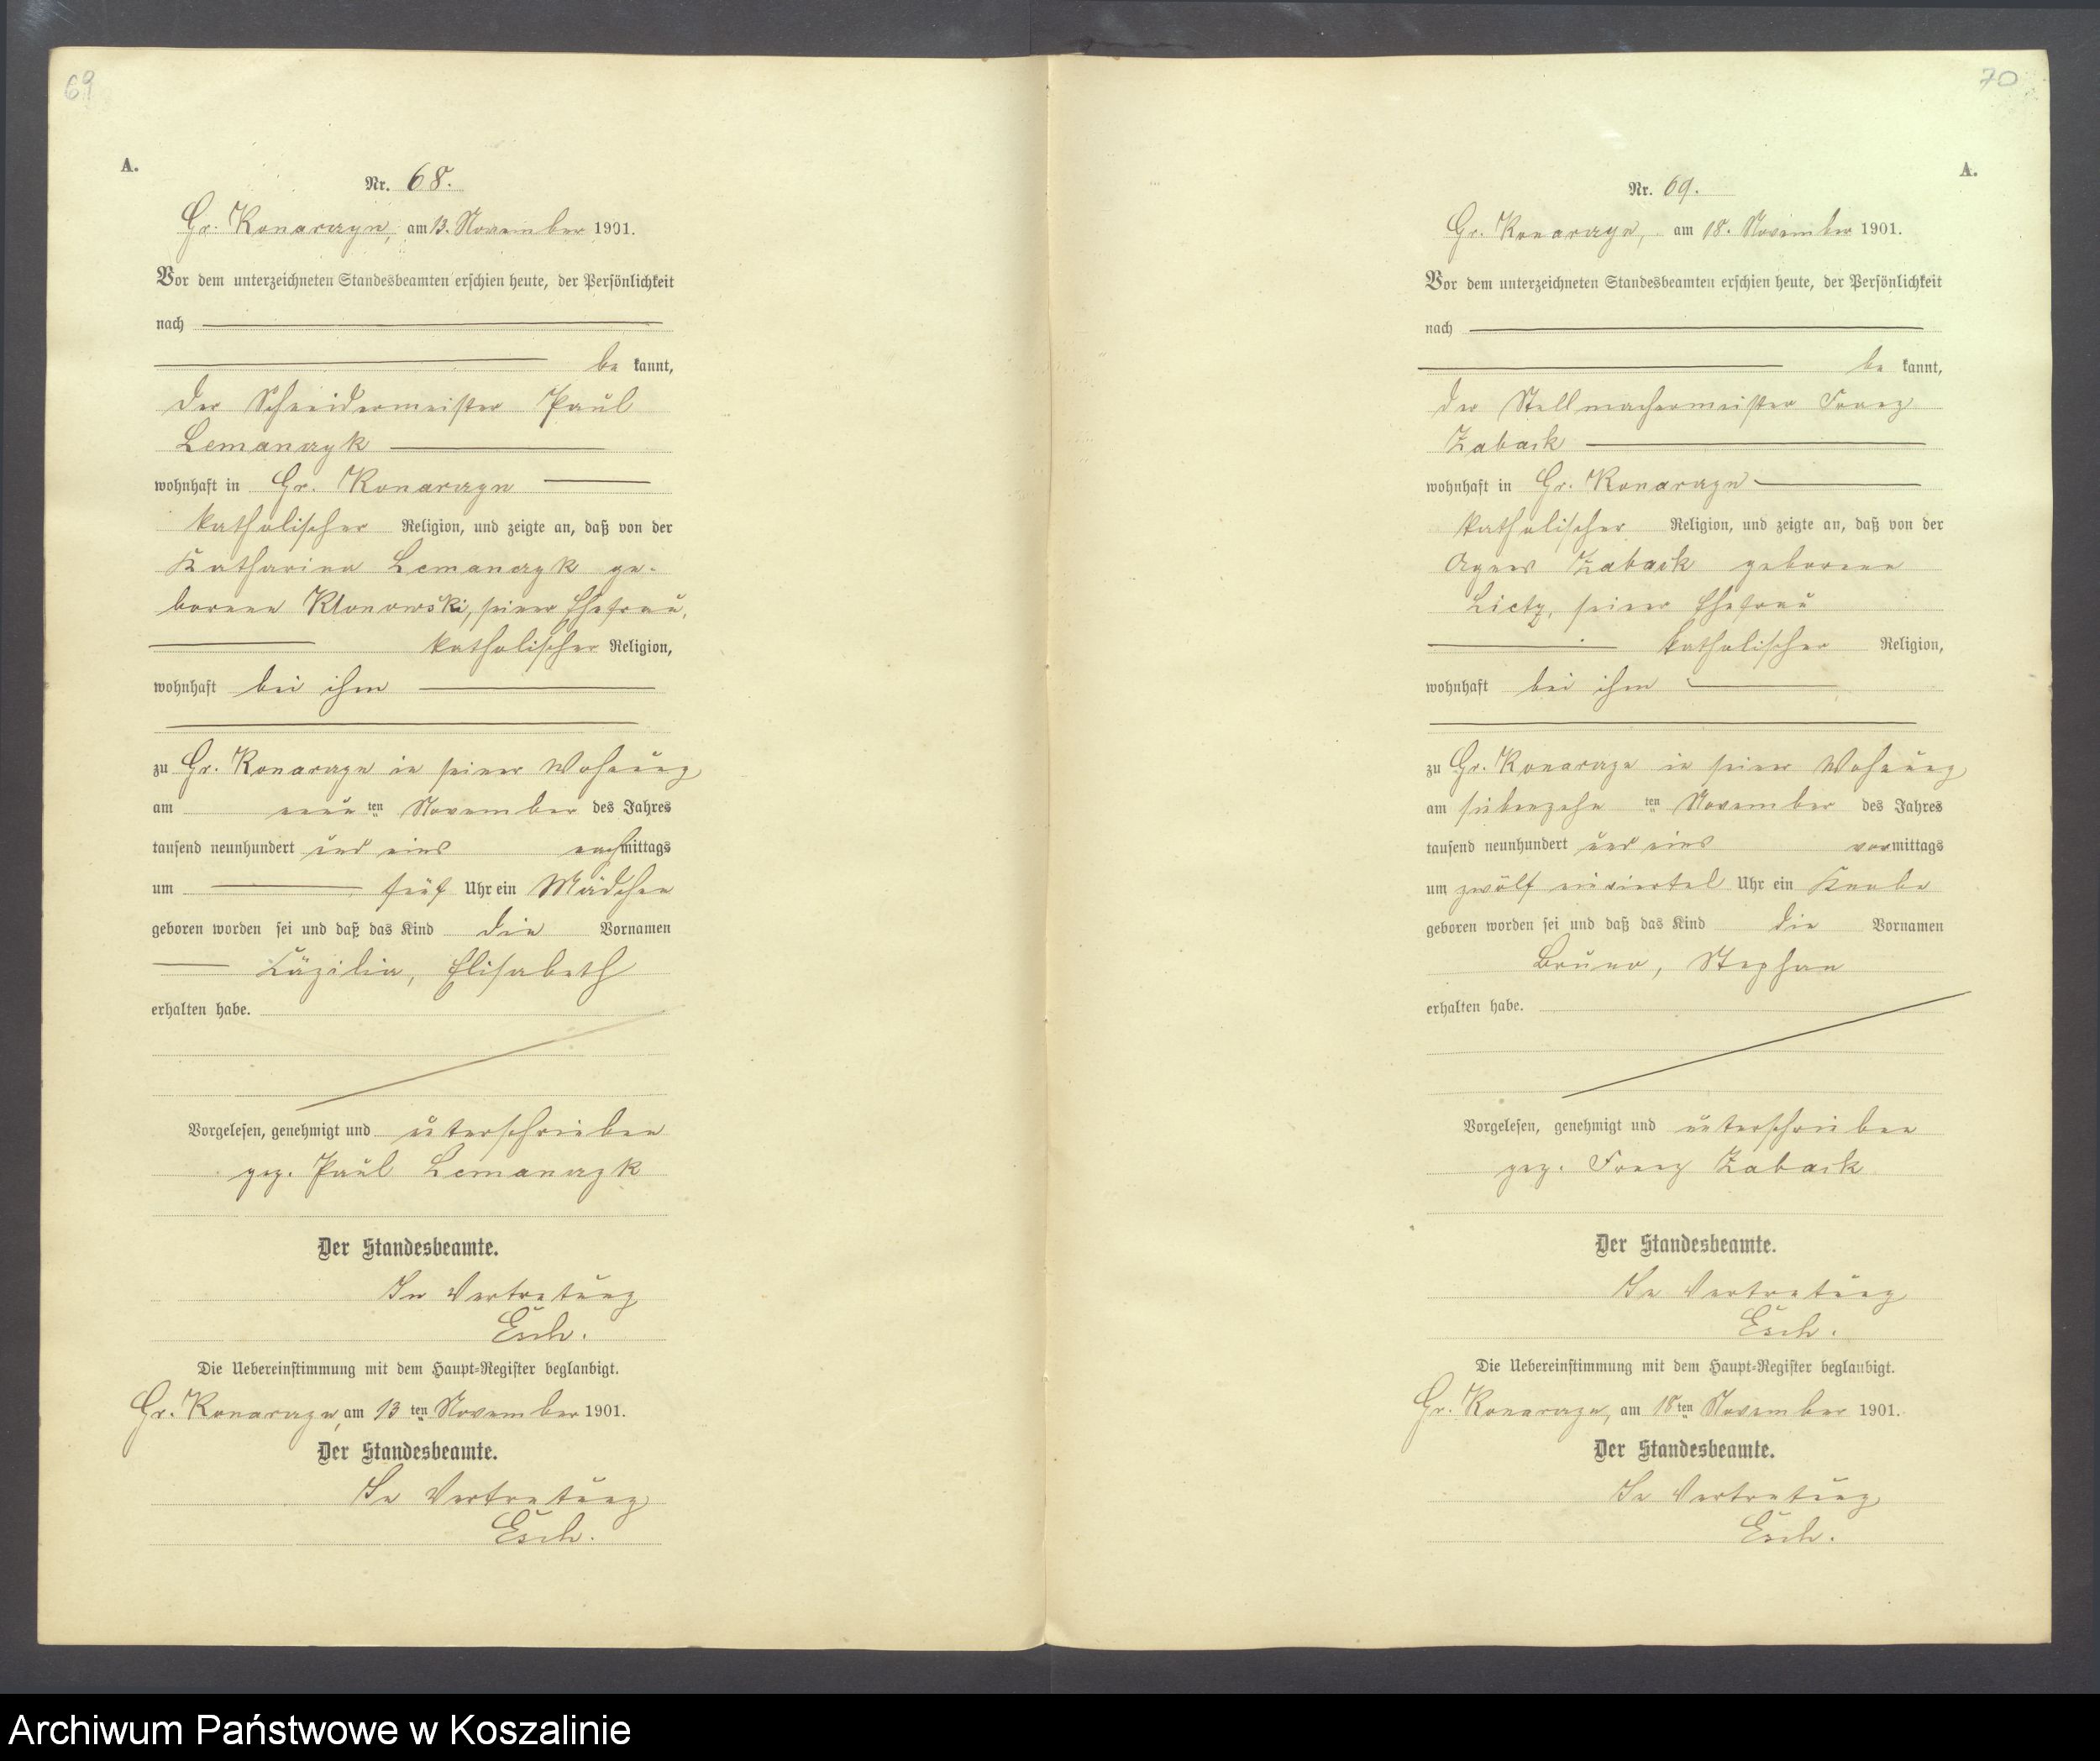 69
A.
Nr. 68.
Gr. Konarczyn, am 13. November 1901.
Vor dem unterzeichneten Standesbeamten erschien heute, der Persönlichkeit
nach
be kannt,
der Schneidermeister Paul
Lemanczyk
wohnhaft in Gr. Konarczyn
katholischer Religion, und zeigte an, daß von der
Katharina Lemanczyk ge-
borene Klonowski, seiner Ehefrau,
katholischer Religion,
wohnhaft bei ihm
zu Gr. Konarczyn in seiner Wohnung
am neun ten November des Jahres
tausend neunhundert und eins nachmittags
um fünf Uhr ein Mädchen
geboren worden sei und daß das Kind die Vornamen
Cäzilia, Elisabeth
erhalten habe.
Vorgelesen, genehmigt und unterschrieben
gez. Paul Lemanczyk
Der Standesbeamte.
In Vertretung
Esch.
Die Uebereinstimmung mit dem Haupt-Register beglaubigt.
Gr. Konarczyn, am 13 ten November 1901.
Der Standesbeamte.
In Vertretung
Esch.
70
A.
Nr. 69.
Gr. Konarczyn, am 18. November 1901.
Vor dem unterzeichneten Standesbeamten erschien heute, der Persönlichkeit
nach
be kannt,
der Stellmachermeister Franz
Zabrock
wohnhaft in Gr. Konarczyn
katholischer Religion, und zeigte an, daß von der
Agnes geborene
seiner Ehefrau
katholischer Religion,
wohnhaft bei ihm
zu Gr. Konarczyn in seiner Wohnung
am siebenzehn ten November des Jahres
tausend neunhundert und eins vormittags
um zwölf einviertel Uhr ein Knabe
geboren worden sei und daß das Kind die Vornamen
Bruno, Stephan
erhalten habe.
Vorgelesen, genehmigt und unterschrieben
gez. Franz
Der Standesbeamte.
In Vertretung
Esch.
Die Uebereinstimmung mit dem Haupt-Register beglaubigt.
Gr. Konarczyn, am 18 ten November 1901.
Der Standesbeamte.
In Vertretung
Esch.
Archiwum Państwowe w Koszalinie